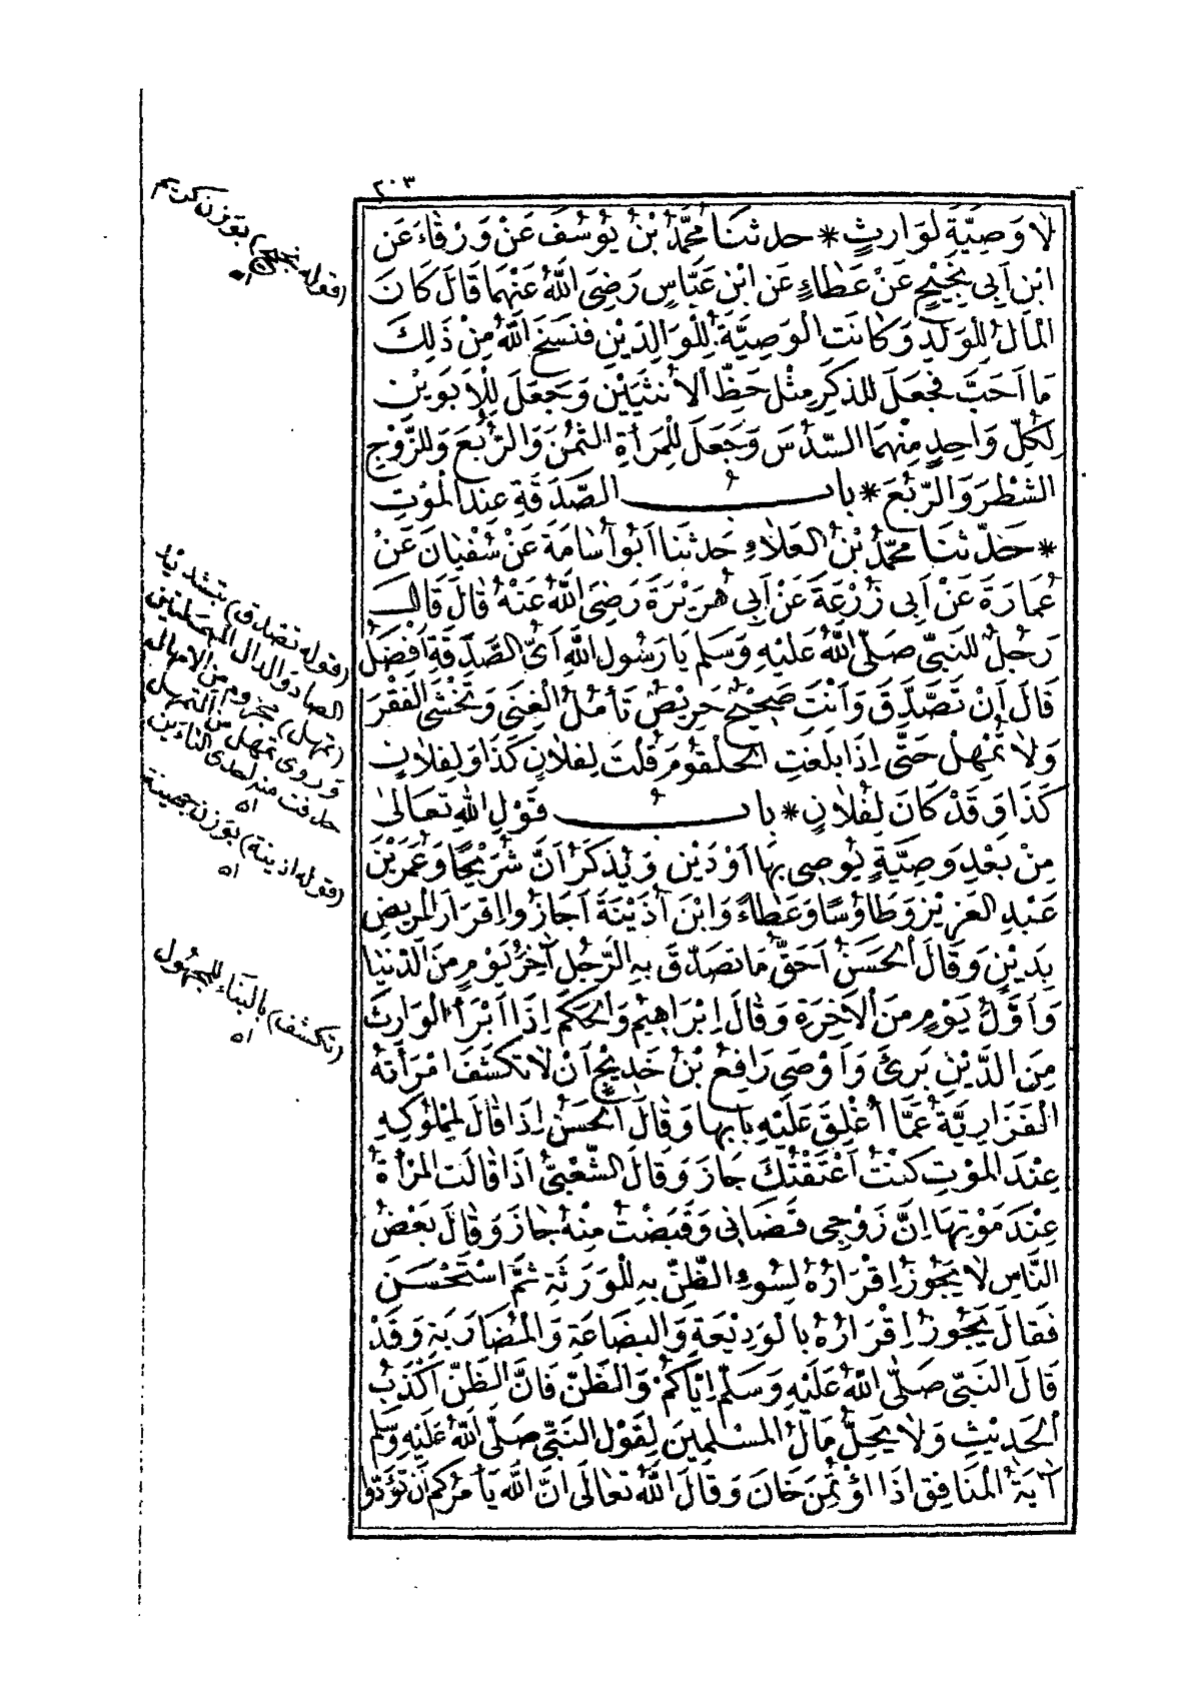 ٢٠٣
لَا وَصِيَّةَ لِوَارِثٍ * حدثنَا مُحَمَّدُ بْنُ يُوسُفَ عَنْ وَرْقَاءَ عَنِ
ابْنِ أَبِي نَجِيْحٍ عَنْ عَطَاءٍ عَنِ ابْنِ عَبَّاسٍ رَضِيَ اللهُ عَنْهُمَا قَالَ كَانَ
الْمَالُ لِلْوَلَدِ وَكَانَتِ الْوَصِيَّةُ لِلْوَالِدَيْنِ فَنَسَخَ اللهُ مِنْ ذَلِكَ
مَا أَحَبَّ فَجَعَلَ لِلذَّكَرِ مِثْلَ حَظِّ الْأُنْثَيَيْنِ وَجَعَلَ لِلْأَبَوَيْنِ
لِكُلِّ وَاحِدٍ مِنْهُمَا السُّدُسَ وَجَعَلَ لِلْمَرْأَةِ الثُّمُنَ وَالرُّبُعَ وَلِلزَّوْجِ
الشَّطْرَ وَالرُّبُعَ * بابُ الصَّدَقَةِ عِنْدَ الْمَوْتِ
* حَدَّثَنَا مُحَمَّدُ بْنُ الْعَلَاءِ حَدثنَا أَبُو أُسَامَةَ عَنْ سُفْيَانَ عَنْ
عُمَارَةَ عَنْ أَبِي زُرْعَةَ عَنْ أَبِي هُرَيْرَةَ رَضِيَ اللهُ عَنْهُ قَالَ قَالَ
رَجُلٌ لِلنَّبِيِّ صَلَّى اللهُ عَلَيْهِ وَسَلَّمَ يَا رَسُولَ اللهِ أَيُّ الصَّدَقَةِ أَفْضَلُ
قَالَ أَنْ تَصَّدَّقَ وَأَنْتَ صَحِيْحٌ حَرِيْصٌ تَأْمُلُ الْغِنَى وَتَخْشَى الْفَقْرَ
وَلَا تُمْهِلْ حَتَّى إِذَا بَلَغَتِ الْحُلْقُومَ قُلْتَ لِفُلَانٍ كَذَا وَلِفُلَانٍ
كَذَا وَقَدْ كَانَ لِفُلَانٍ * بابُ قَوْلِ اللهِ تَعَالَى
مِنْ بَعْدِ وَصِيَّةٍ يُوصِي بِهَا أَوْ دَيْنٍ وَيُذْكَرُ أَنَّ شُرَيْحًا وَعُمَرَ بْنَ
عَبْدِ الْعَزِيْزِ وَطَاوُسًا وَعَطَاءً وَابْنَ أُذَيْنَةَ أَجَازُوا إِقْرَارَ الْمَرِيْضِ
بِدَيْنٍ وَقَالَ الْحَسَنُ أَحَقُّ مَا تَصَدَّقَ بِهِ الرَّجُلُ آخِرُ يَوْمٍ مِنَ الدُّنْيَا
وَأَوَّلُ يَوْمٍ مِنَ الْآخِرَةِ وَقَالَ إِبْرَاهِيْمُ وَالْحَكَمُ إِذَا أَبْرَأَ الْوَارِثَ
مِنَ الدَّيْنِ بَرِئَ وَأَوْصَى رَافِعُ بْنُ خَدِيْجٍ أَنْ لَا تُكْشَفَ امْرَأَتُهُ
الْفَزَارِيَّةُ عَمَّا أُغْلِقَ عَلَيْهِ بَابُهَا وَقَالَ الْحَسَنُ إِذَا قَالَ لِمَمْلُوكِهِ
عِنْدَ الْمَوْتِ كُنْتُ أَعْتَقْتُكَ جَازَ وَقَالَ الشَّعْبِيُّ إِذَا قَالَتِ الْمَرْأَةُ
عِنْدَ مَوْتِهَا إِنَّ زَوْجِي قَضَانِي وَقَبَضْتُ مِنْهُ جَازَ وَقَالَ بَعْضُ
النَّاسِ لَا يَجُوزُ إِقْرَارُهُ لِسُوءِ الظَّنِّ بِهِ لِلْوَرَثَةِ ثُمَّ اسْتَحْسَنَ
فَقَالَ يَجُوزُ إِقْرَارُهُ بِالْوَدِيْعَةِ وَالْبِضَاعَةِ وَالْمُضَارَبَةِ وَقَدْ
قَالَ النَّبِيُّ صَلَّى اللهُ عَلَيْهِ وَسَلَّمَ إِيَّاكُمْ وَالظَّنَّ فَإِنَّ الظَّنَّ أَكْذَبُ
الْحَدِيْثِ وَلَا يَحِلُّ مَالُ الْمُسْلِمِيْنَ لِقَوْلِ النَّبِيِّ صَلَّى اللهُ عَلَيْهِ وَسَلَّم
آيَةُ الْمُنَافِقِ إِذَا اؤْتُمِنَ خَانَ وَقَالَ اللهُ تَعَالَى إِنَّ اللهَ يَأْمُرُكُمْ أَنْ تُؤَدُّوا
(قوله نجيح) بوزن كريم
اه
(قوله تصدق) بتشديد
الصاد والدال المهملتين
(تمهل) مجزوم من الامهال
وروى تمهل من التمهل
حذفت منه احدى التاءين
اه
(قوله اذينة) بوزن جهينة
اه
(تكشف) بالبناء للمجهول
اه